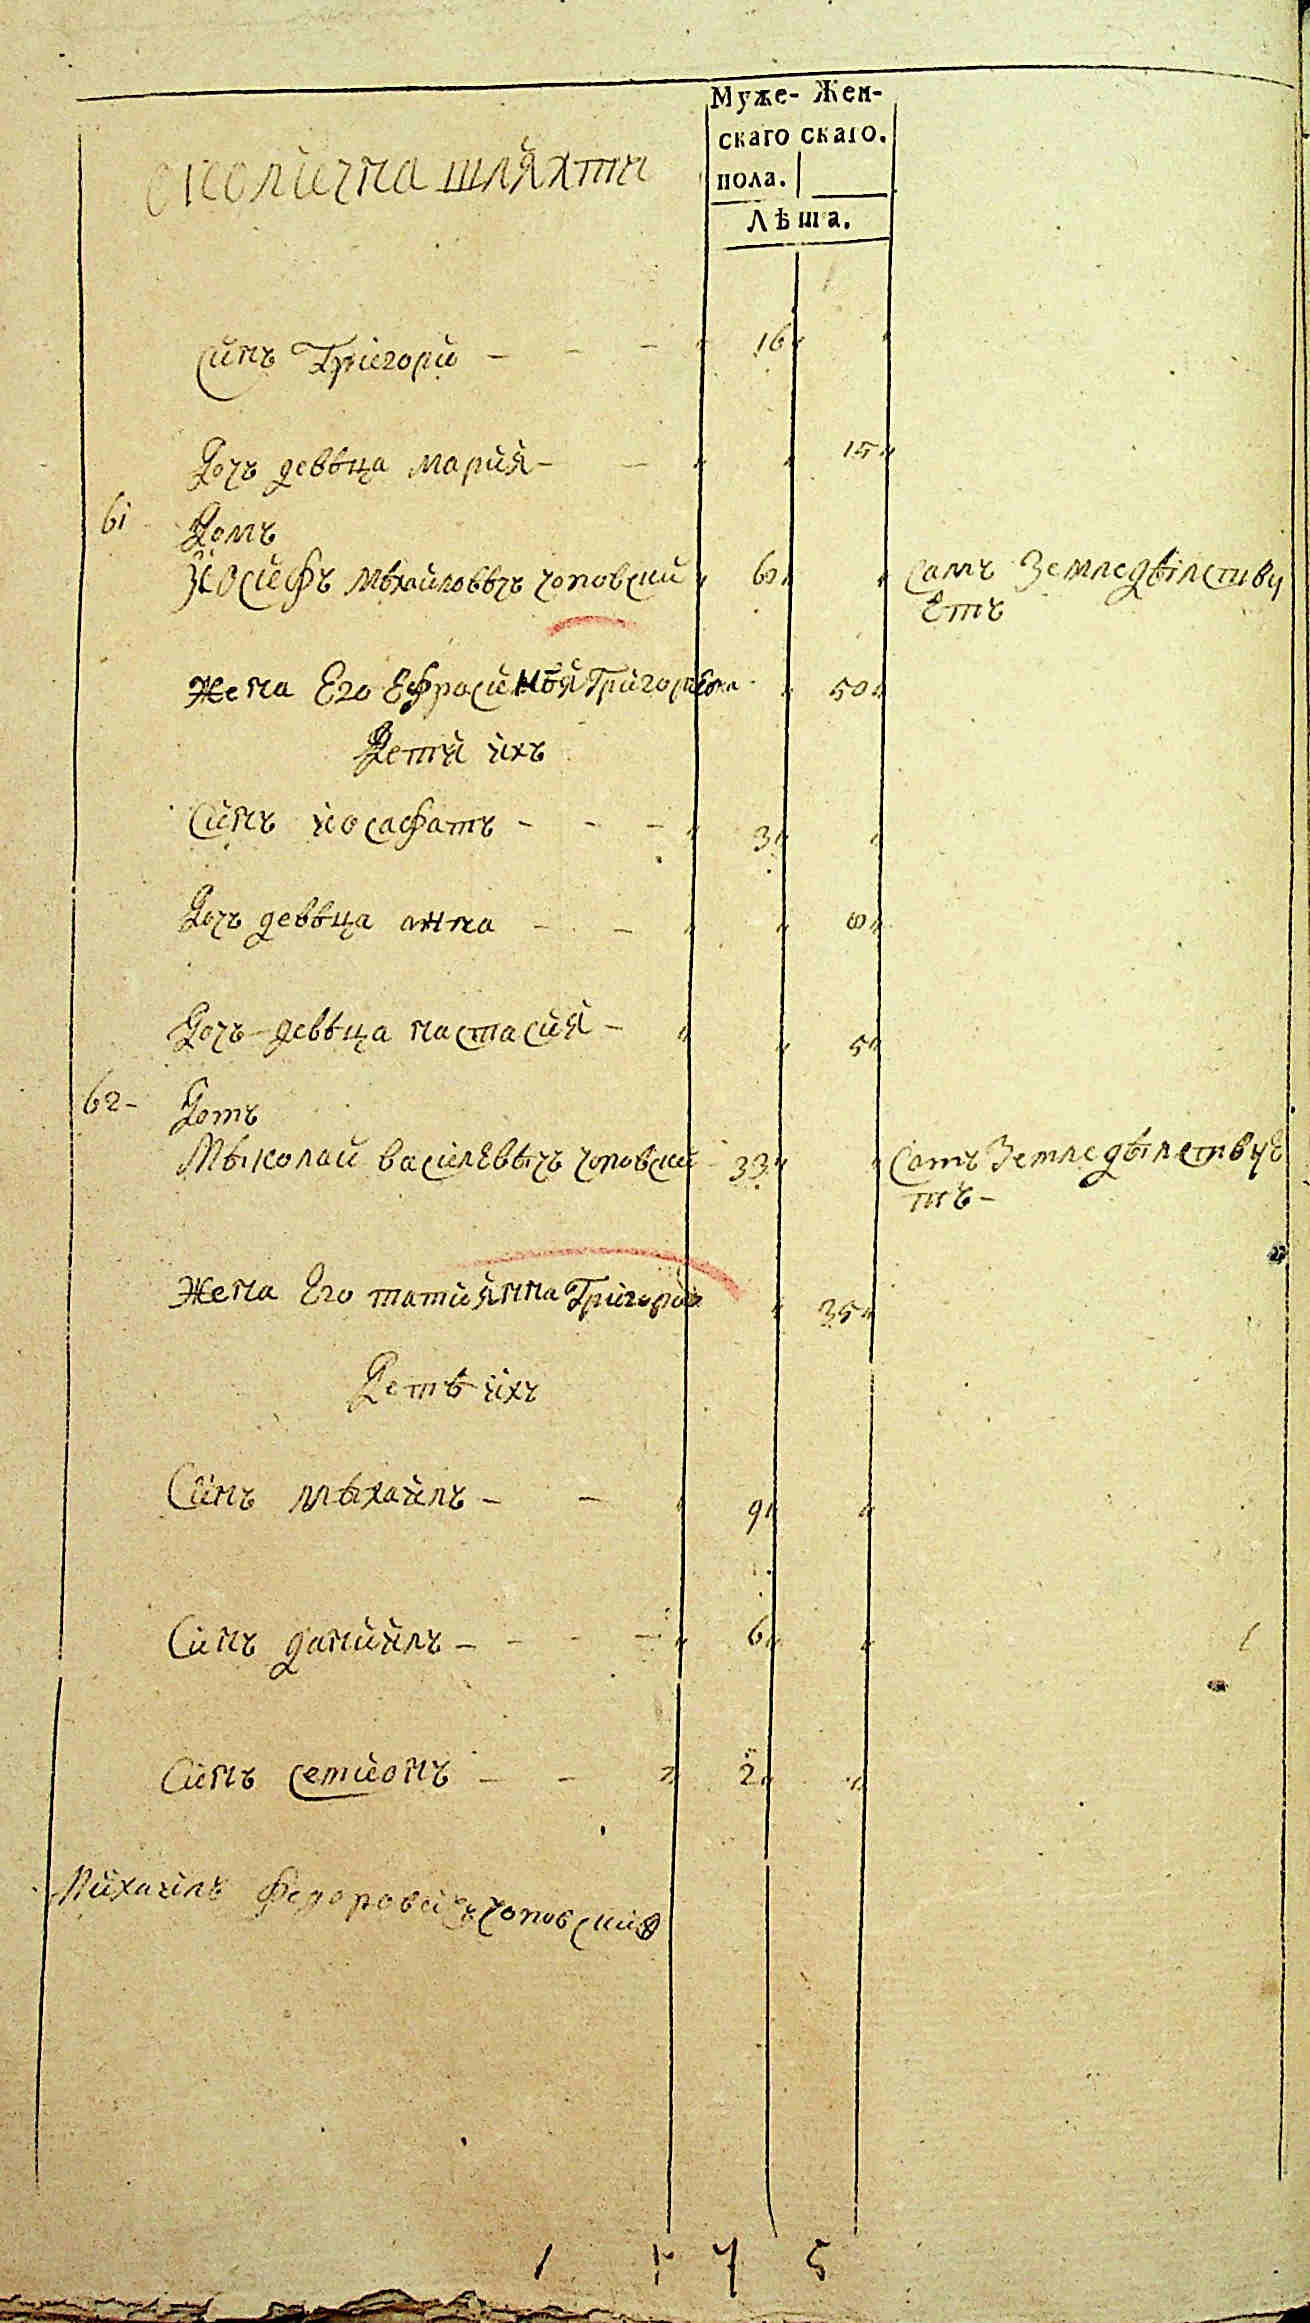 Муже- Жен-
скаго скаго.
пола.
Лѣта.
околична шляхти
Синъ Григори - - - 16
Дочъ девѣца мария - - 15
61 Домъ
Иосифъ Мѣхайловѣчъ чоповский 60 самъ Земледѣлствуу
Етъ
Жена Его Ефросиния Григорьева 50
Дети ихъ
Синъ иосафатъ - - - 3
Дочъ девѣца анна - - 8
Дочъ девѣца настасия - 5
62 - Домъ
Мыколай василевѣчъ чоповский - 33 Самъ Земледѣлствуе
тъ -
Жена Его татиянна Григорьев 35
Детѣ ихъ
Синъ мыхаилъ - - 9
Синъ даниилъ - - - - 6
Синъ семионъ - - 2
Михаилъ Федоровичъ чоповский